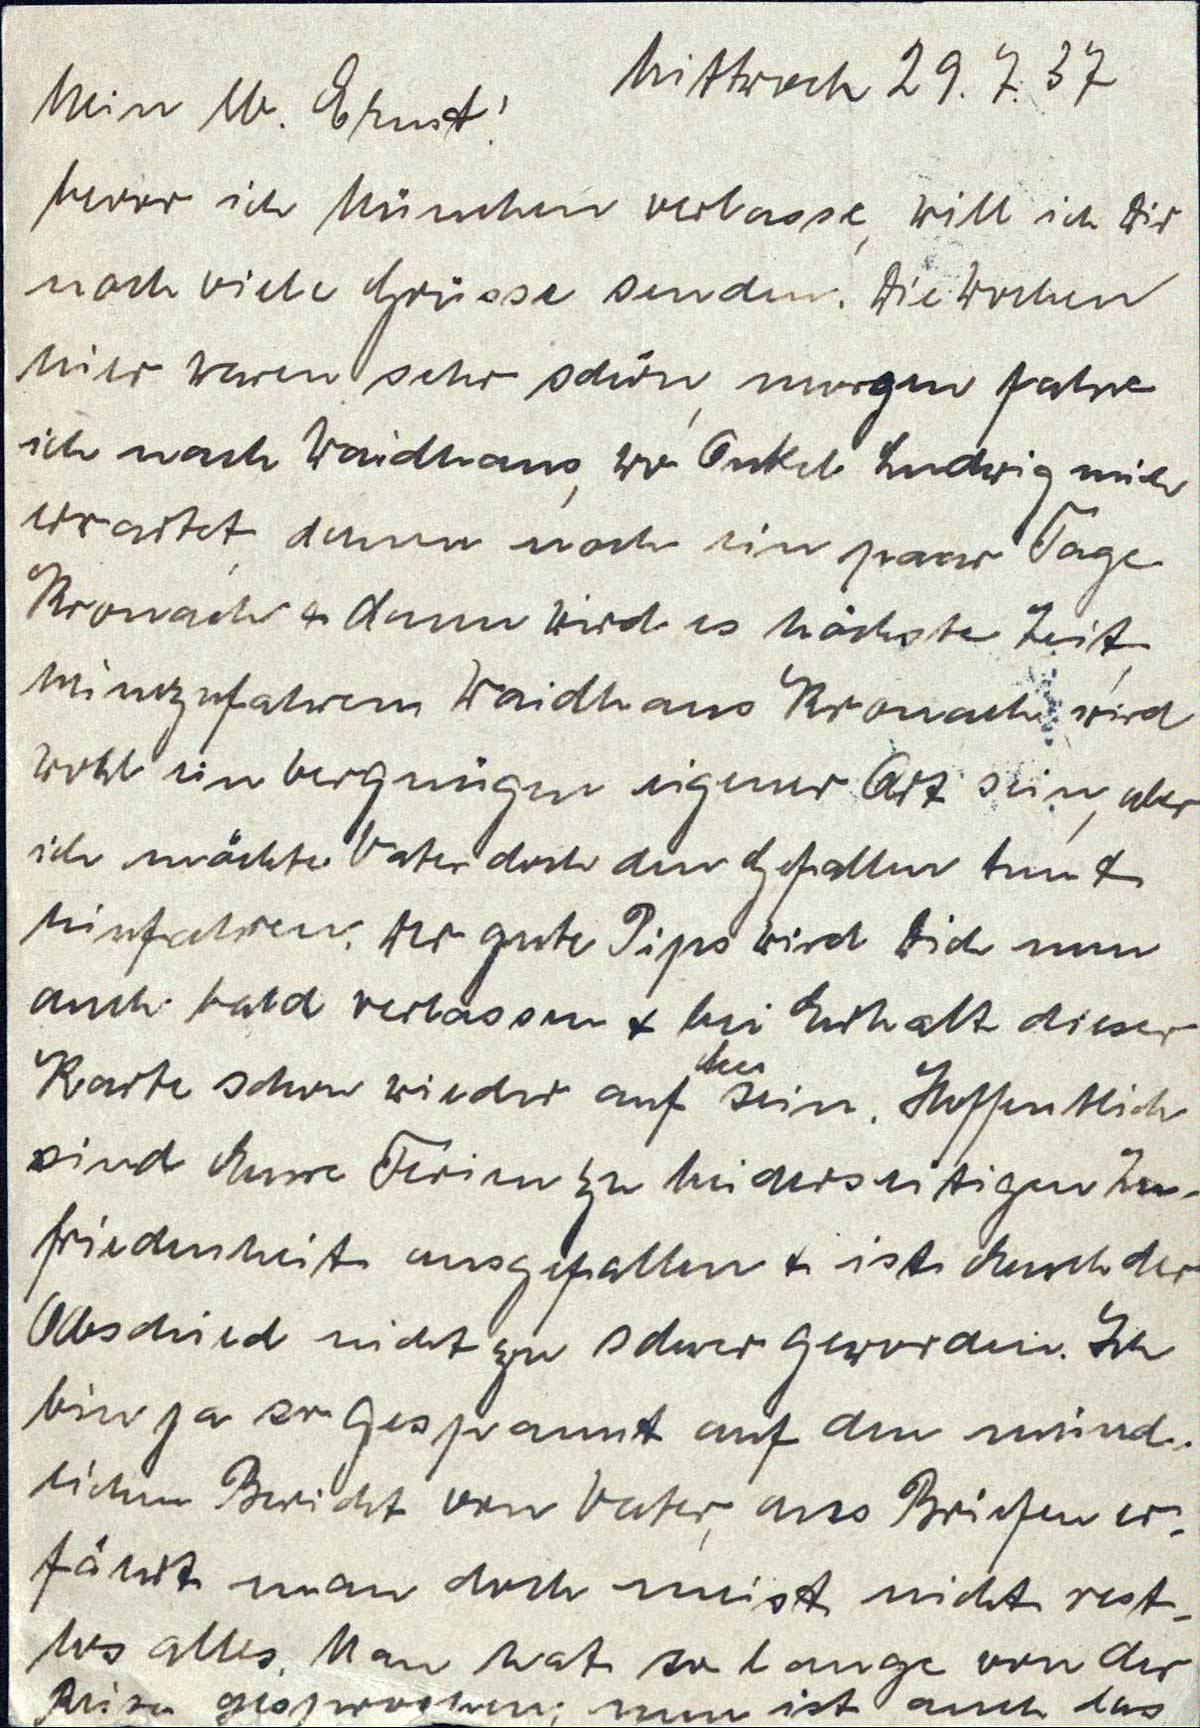 Mittwoch 29.7.37
Mein lb. Ernst!
bevor ich München verlasse, will ich Dir
noch viele Grüsse senden. Die Wochen
hier waren sehr schön, morgen fahre
ich nach Waidhaus, wo Onkel Ludwig mich
erwartet, dann noch ein paar Tage
Kronach + dann wird es höchste Zeit,
heimzufahren. Waidhaus Kronach wird
wohl ein Vergnügen eigener Art sein, aber
ich möchte Vater doch den Gefallen tun +
hinfahren. Der gute Pips wird Dich nun
auch bald verlassen + bei Erhalt dieser
Karte schon wieder auf See sein. Hoffentlich
sind Eure Ferien zu beiderseitigen Zu-
friedenheit ausgefallen + ist Euch der
Abschied nicht zu schwer geworden. Ich
bin ja so gespannt auf den münd-
lichen Bericht von Vater, aus Briefen er-
fährt man doch meist nicht rest-
los alles. Man hat so lange von der
Reise gesprochen, nun ist auch das